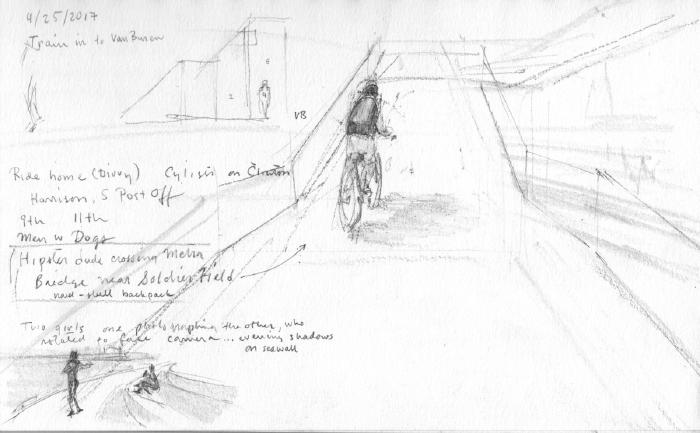 4/25/2017
Train in to Van Buren
VB
Ride home (Divvy) Cylists on Clinton
Harrison, S Post Off
9th 11th
Men w Dogs
Hipster dude crossing Metra
Bridge near Soldier Field
hard-shell backpack
Two girls one photographing the other, who
rotated to face camera... evening shadows
on seawall